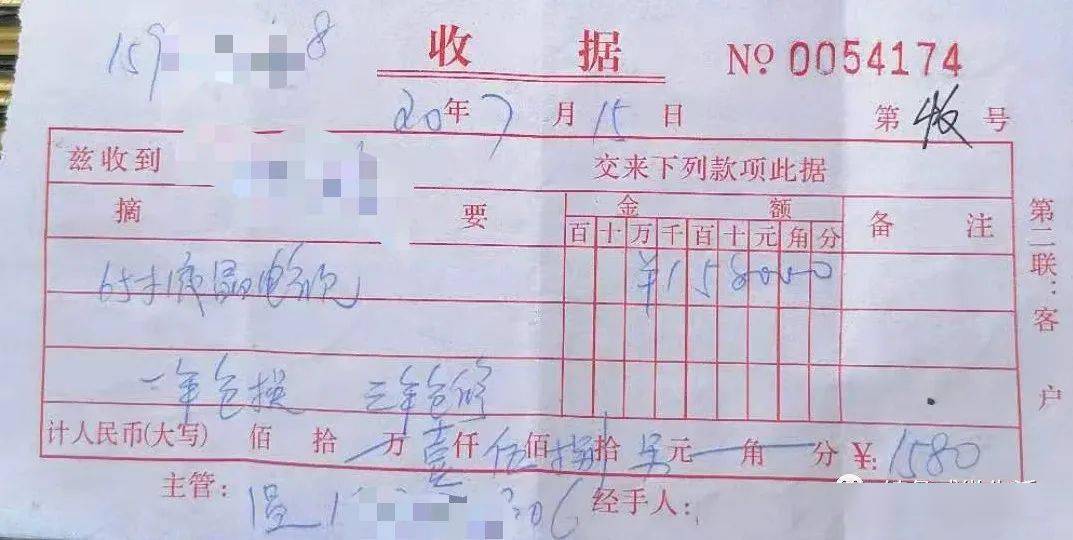 159 8 收据 № 0054174
20年7月15日 第 号
兹收到 交来下列款项此据
摘要 金额 备注
百十万千百十元角分
65寸液晶电视 ¥158000
一年包换 三年包修
计人民币(大写) 佰 拾 万壹仟伍佰捌拾另元 角 分 ¥:1580
主管: 温1 306 经手人:
第二联:客户